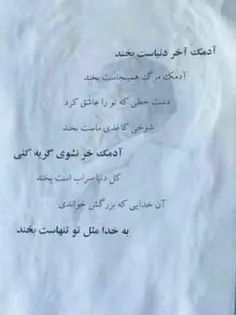 آدمک آخر دنیاست بخند
آدمک مرگ همینجاست بخند
دست خطی که تو را عاشق کرد
شوخی کاغذی ماست بخند
آدمک خر نشوی گریه کنی
کل دنیا سراب است بخند
آن خدایی که بزرگش خواندی
به خدا مثل تو تنهاست بخند